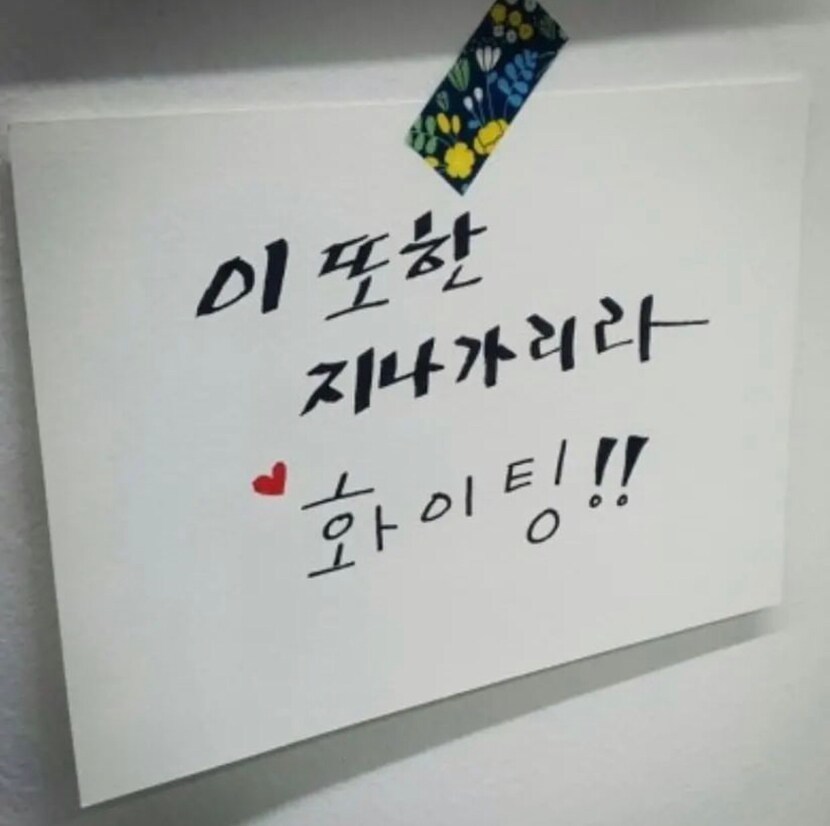 이 또한
지나가리라
화이팅!!